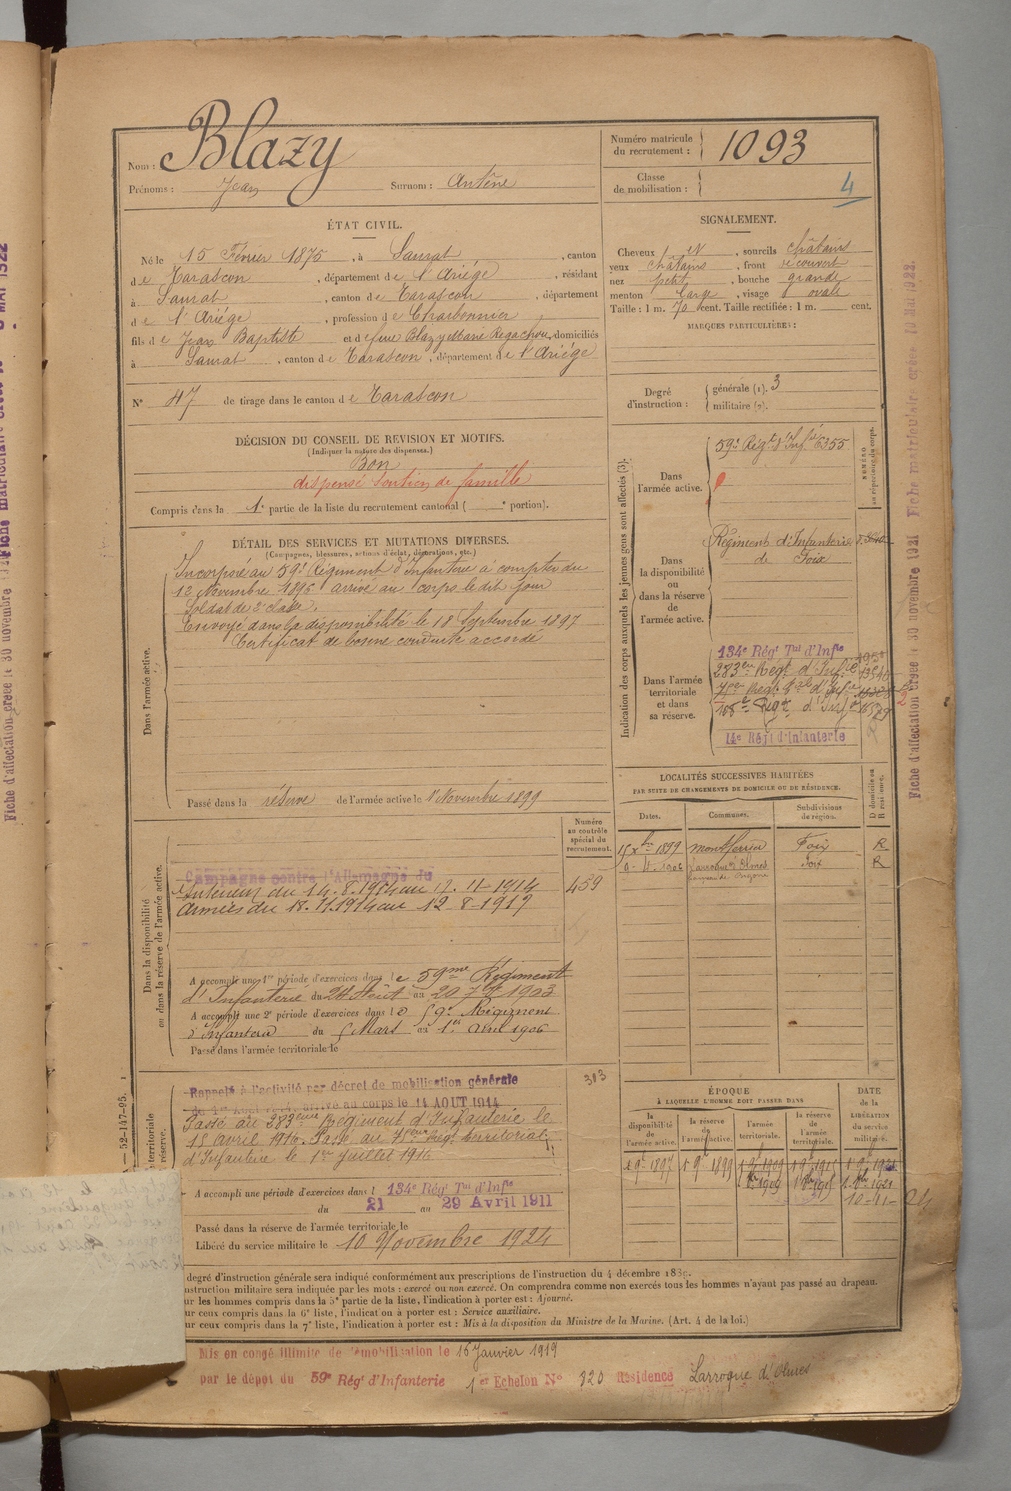 Nom : Blazy
Prénoms : Jean Surnom : Anténe
Numéro matricule
du recrutement : 1093
Classe
de mobilisation :
4
ÉTAT CIVIL.
Né le 15 Février 1875, à Saurat, canton
de Tarascon, département de l'Ariége, résidant
à Saurat, canton de Tarascon, département
de l'Ariége, profession de Charbonnier
fils de Jean Baptiste et de feue Blazy Marie, domiciliés
à Saurat, canton de Tarascon, département de l'Ariége
N° 47 de tirage dans le canton de Tarascon
SIGNALEMENT.
Cheveux, sourcils châtains
yeux châtains, front
nez petit, bouche grande
menton large, visage ovale
Taille : 1 m. 70 cent. Taille rectifiée : 1 m. cent.
MARQUES PARTICULIÈRES :
Degré
d'instruction :
générale (1). 3
militaire (2).
DÉCISION DU CONSEIL DE REVISION ET MOTIFS.
(Indiquer la nature des dispenses.)
Bon
dispensé soutien de famille
Compris dans la 1e partie de la liste du recrutement cantonal ( e portion).
DÉTAIL DES SERVICES ET MUTATIONS DIVERSES.
(Campagnes, blessures, actions d'éclat, décorations, etc.)
Dans l'armée active.
Incorporé au 59e Régiment d'Infanterie à compter du
12 Novembre 1896 arrivé au corps le dit jour
Soldat de 2e classe.
Envoyé dans la disponibilité le 18 Septembre 1897
Certificat de bonne conduite accordé
Passé dans la réserve de l'armée active le 1 Novembre 1899
Indication des corps auxquels les jeunes gens sont affectés (3).
NUMÉRO
au répertoire du corps.
Dans
l'armée active.
59e Régt d'Infie 6355
Dans
la disponibilité
ou dans
la réserve
de
l'armée active.
Régiment d'Infanterie
de Foix
Dans l'armée
territoriale
et dans
sa réserve.
134e Régt Tal d'Infie
283eme Régt d'Infie
14e Régt d'Infanterie
LOCALITÉS SUCCESSIVES HABITÉES
PAR SUITE DE CHANGEMENTS DE DOMICILE OU DE RÉSIDENCE.
Dates. Communes. Subdivisions
de région. D domicile ou
R résidence.
15 Xbre 1899 Montferrier Foix R
Larroque d'Olmes Foix R
Dans la disponibilité
ou dans la réserve de l'armée active.
Numéro
au contrôle
spécial du
recrutement.
459
Campagne contre l'Allemagne du
Intérieur du 14.8.1914 au 17.11.1914
Armées du 18.11.1914 au 12 8 1917
A accompli une 1re période d'exercices dans le 59me Régiment
d'Infanterie du 24 Août au 20 7bre 1903
A accompli une 2e période d'exercices dans le 59e Régiment
d'Infanterie du 5 Mars au 1er Avril 1906
Passé dans l'armée territoriale le
313
Rappelé à l'activité par décret de mobilisation générale
du 1er Août 1914, arrivé au corps le 14 AOUT 1914
Passé au 283ème Régiment d'Infanterie le
15 avril 1916. Passé au Régt territorial
d'Infanterie le 1er juillet 1916
A accompli une période d'exercices dans l 134e Régt Tal d'Infie
du 21 au 29 Avril 1911
Passé dans la réserve de l'armée territoriale le
Libéré du service militaire le 10 Novembre 1924
ÉPOQUE
À LAQUELLE L'HOMME DOIT PASSER DANS
la
disponibilité
de
l'armée active.
la
réserve
de
l'armée active.
l'armée
territoriale.
la réserve
de
l'armée
territoriale.
DATE
de la
LIBÉRATION
du service
militaire.
10-11-24
degré d'instruction générale sera indiqué conformément aux prescriptions de l'instruction du 4 décembre 1889.
nstruction militaire sera indiquée par les mots : exercé ou non exercé. On comprendra comme non exercés tous les hommes n'ayant pas passé au drapeau.
ur les hommes compris dans la 5e partie de la liste, l'indication à porter est : Ajourné.
ur ceux compris dans la 6e liste, l'indication à porter est : Service auxiliaire.
ur ceux compris dans la 7e liste, l'indication à porter est : Mis à la disposition du Ministre de la Marine. (Art. 4 de la loi.)
Mis en congé illimité de démobilisation le 16 Janvier 1919
par le dépôt du 59e Régt d'Infanterie 1er Echelon N° 320 Résidence Larroque d'Olmes
Fiche d'affectation créée le 30 novembre 1921 Fiche matriculaire créée 10 Mai 1922.
52-147-95.